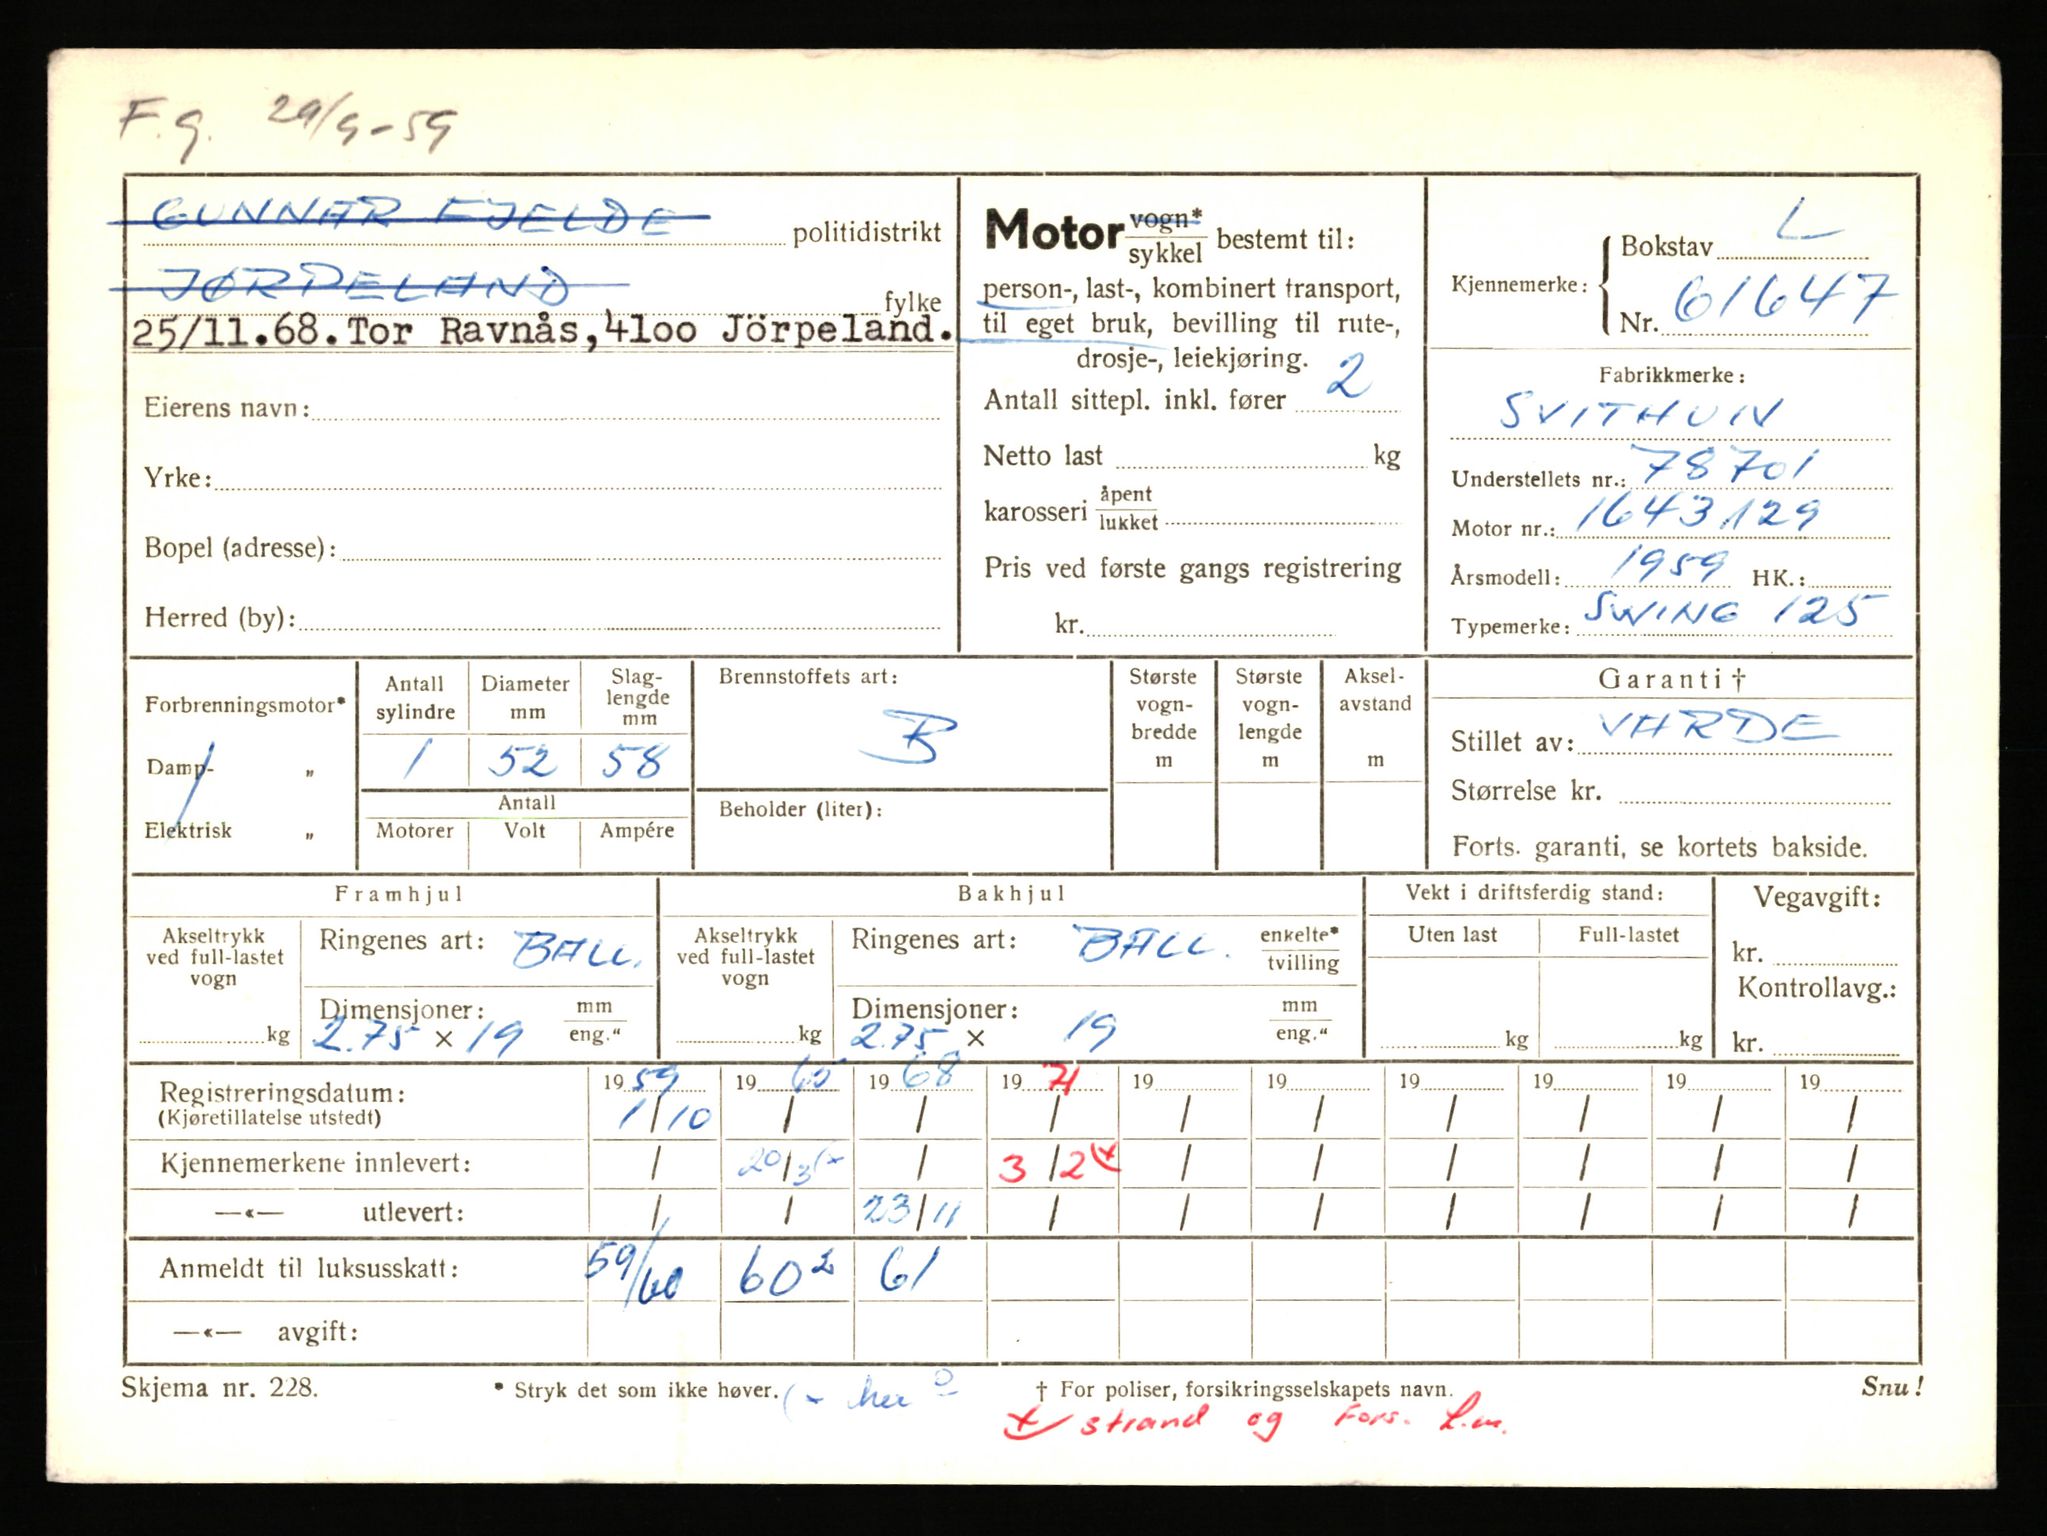 F.g. 29/9-59
GUNNAR FJELDE politidistrikt
JØRPELAND fylke
25/11.68.Tor Ravnås,4100 Jörpeland.
Eierens navn:
Yrke:
Bopel (adresse):
Herred (by):
Motor vogn* sykkel bestemt til:
person-, last-, kombinert transport,
til eget bruk, bevilling til rute-,
drosje-, leiekjøring.
Antall sittepl. inkl. fører 2
Netto last kg
karosseri åpent lukket
Pris ved første gangs registrering
kr.
Kjennemerke: Bokstav L
Nr. 61647
Fabrikkmerke:
SVITHUN
Understellets nr.: 78701
Motor nr.: 1643129
Årsmodell: 1959 HK.:
Typemerke: SWING 125
Forbrenningsmotor*
Damp- "
Elektrisk "
Antall sylindre Diameter mm Slaglengde mm
1 52 58
Antall
Motorer Volt Ampére
Brennstoffets art:
B
Beholder (liter):
Største vognbredde m
Største vognlengde m
Akselavstand m
Garanti †
Stillet av: VARDE
Størrelse kr.
Forts. garanti, se kortets bakside.
Framhjul
Akseltrykk ved full-lastet vogn kg
Ringenes art: BALL.
Dimensjoner: mm eng."
2.75 × 19
Bakhjul
Akseltrykk ved full-lastet vogn kg
Ringenes art: BALL. enkelte* tvilling
Dimensjoner: mm eng."
2.75 × 19
Vekt i driftsferdig stand:
Uten last Full-lastet
kg kg
Vegavgift:
kr.
Kontrollavg.:
kr.
Registreringsdatum: 19 59 19 19 68 19 71 19 19 19 19 19 19
(Kjøretillatelse utstedt) 1/10 / / / / / / / / /
Kjennemerkene innlevert: / 20/3 (x / 3/2 (x / / / / / /
—«— utlevert: / / 23/11 / / / / / / /
Anmeldt til luksusskatt: 59/60 60² 61
—«— avgift:
Skjema nr. 228. * Stryk det som ikke høver. (x her † For poliser, forsikringsselskapets navn. Snu!
x) strand og Fors. L.m.